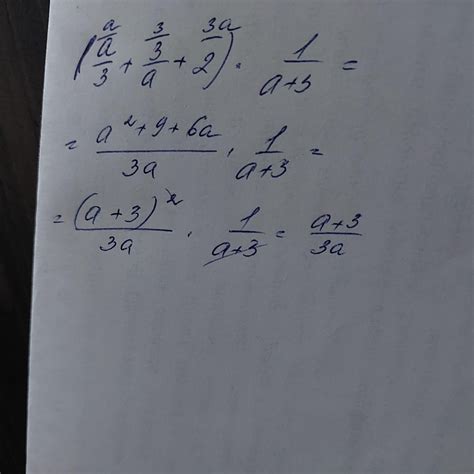 (a/3 + 3/a + 2) · 1/(a+3) =
= (a² + 9 + 6a)/(3a) · 1/(a+3) =
= (a+3)²/(3a) · 1/(a+3) = (a+3)/(3a)